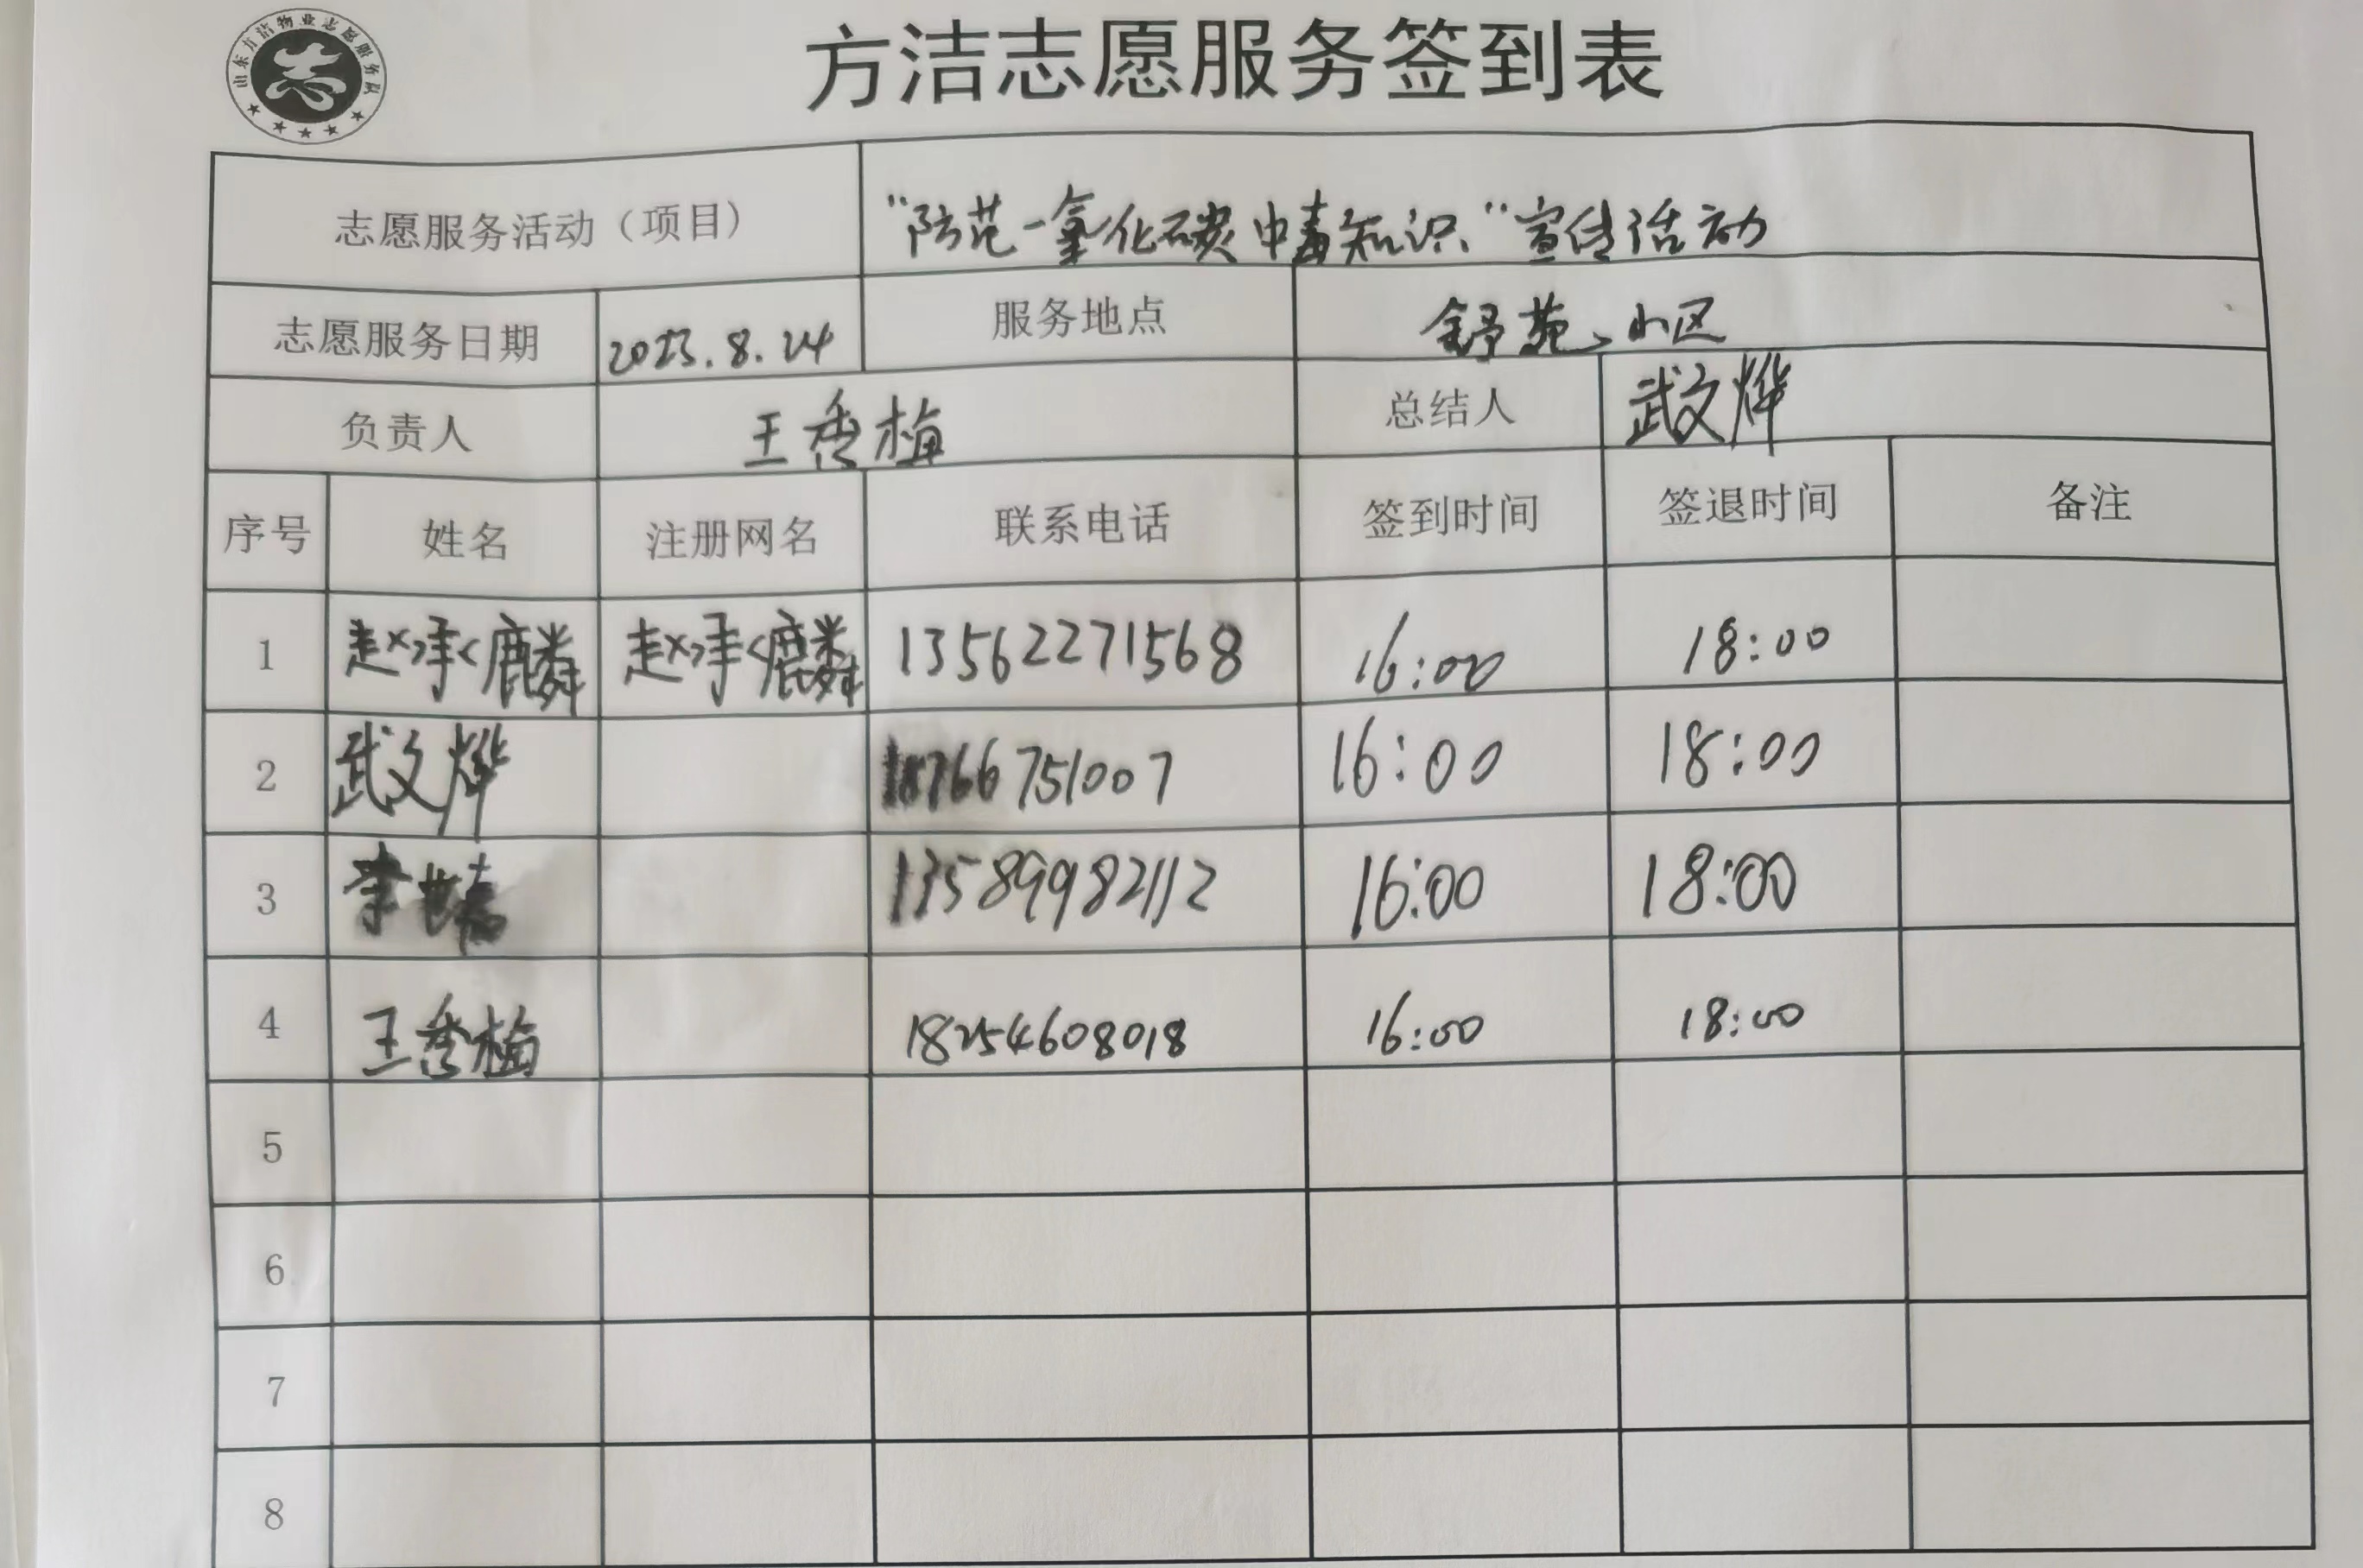 山东方洁物业志愿服务队
方洁志愿服务签到表
志愿服务活动（项目） "防范一氧化碳中毒知识"宣传活动
志愿服务日期 2023.8.24 服务地点 舒苑小区
负责人 王秀梅 总结人 武文烨
序号 姓名 注册网名 联系电话 签到时间 签退时间 备注
1 赵承麟 赵承麟 13562271568 16:00 18:00
2 武文烨 18766751007 16:00 18:00
3 李 13589982112 16:00 18:00
4 王秀梅 18254608018 16:00 18:00
5
6
7
8